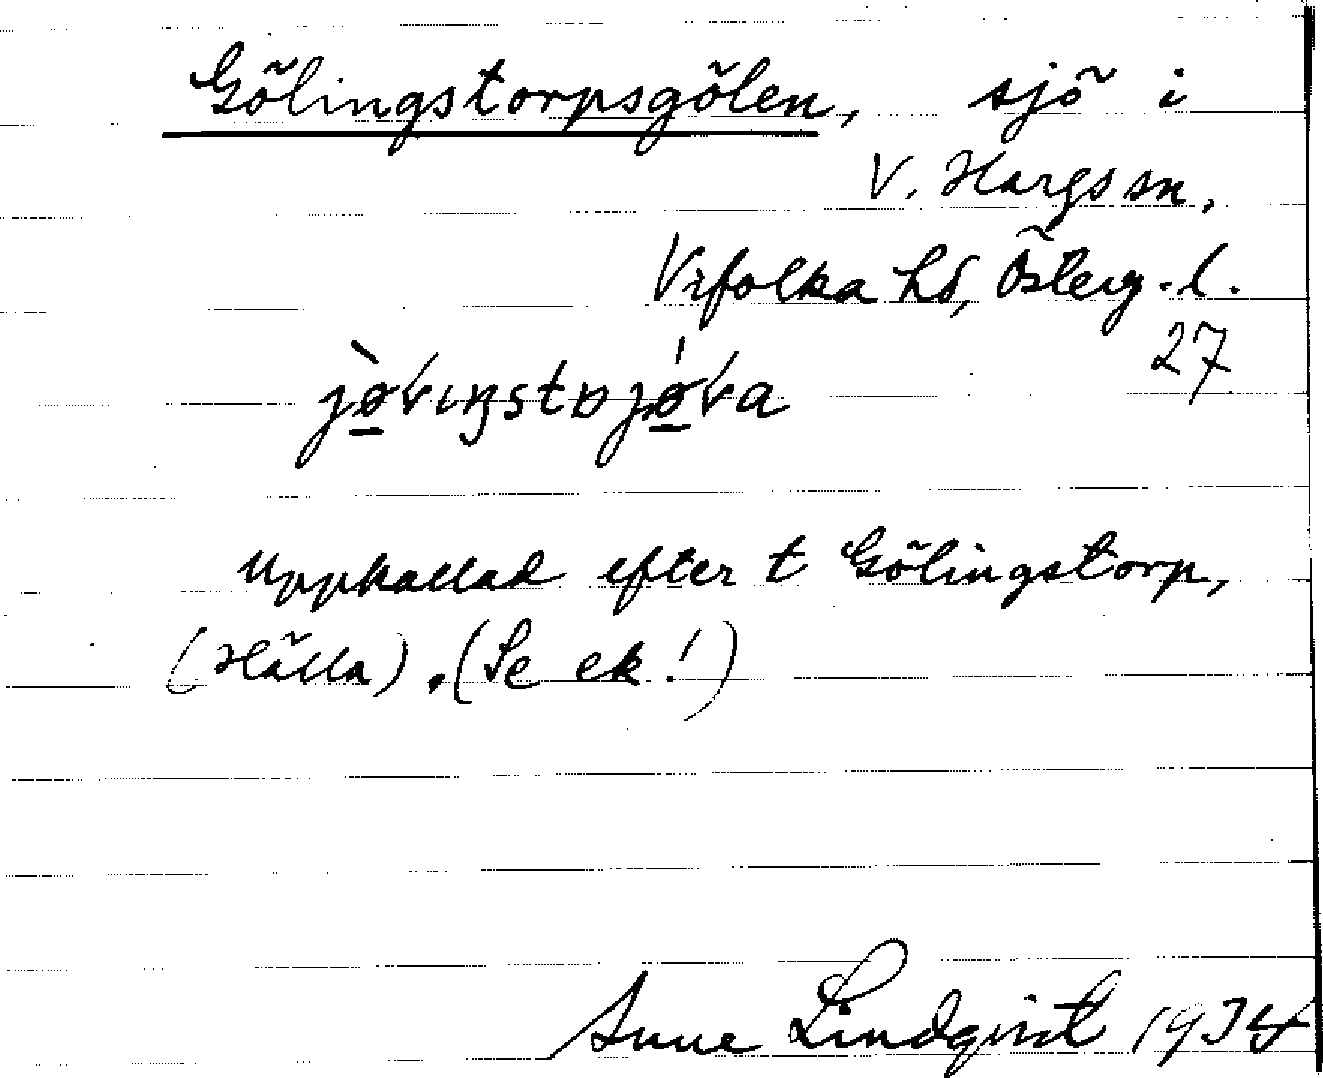 Gölingstorpsgölen, sjö i
V. Hargs sn,
Vifolka hd, Österg. l.
27
Uppkallad efter t Gölingstorp,
(Hälla). (Se ek!)
Sune Lindqvist 1934